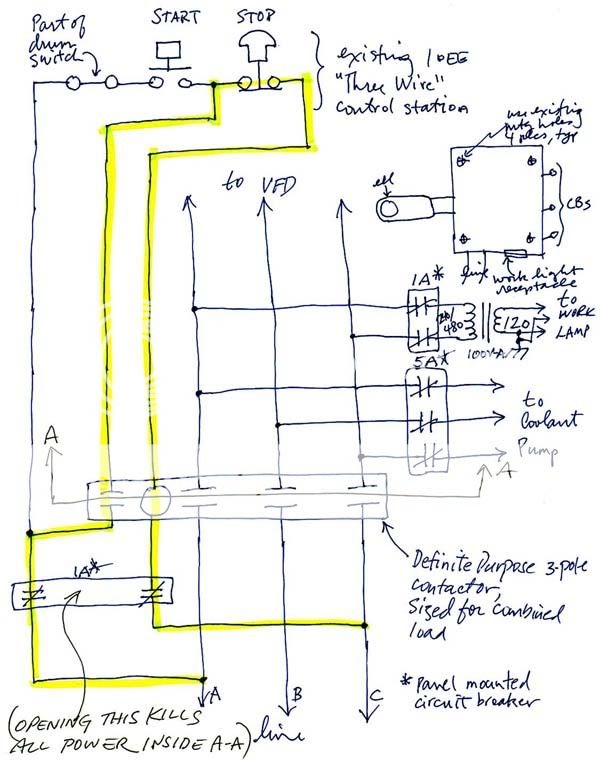 Part of
drum
switch
START
STOP
existing 10EE
"Three Wire"
control station
use existing
mtg holes
4 plcs, typ
ell
CBs
line
work light
receptacle
to VFD
1A*
480
120
100VA
to
WORK
LAMP
5A*
to
Coolant
Pump
A
A
Definite Purpose 3-pole
contactor,
Sized for combined
load
1A*
A
B
C
line
(OPENING THIS KILLS
ALL POWER INSIDE A-A)
* panel mounted
circuit breaker